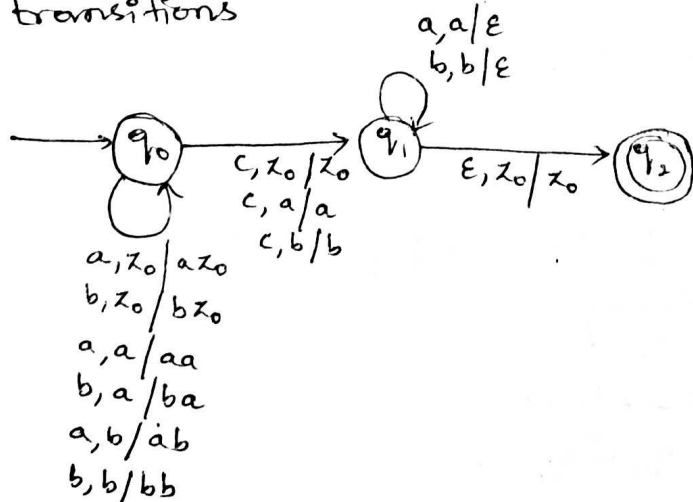 transitions
a,a/ε
b,b/ε
q₀
q₁
q₂
c,z₀/z₀
c,a/a
c,b/b
ε,z₀/z₀
a,z₀/az₀
b,z₀/bz₀
a,a/aa
b,a/ba
a,b/ab
b,b/bb